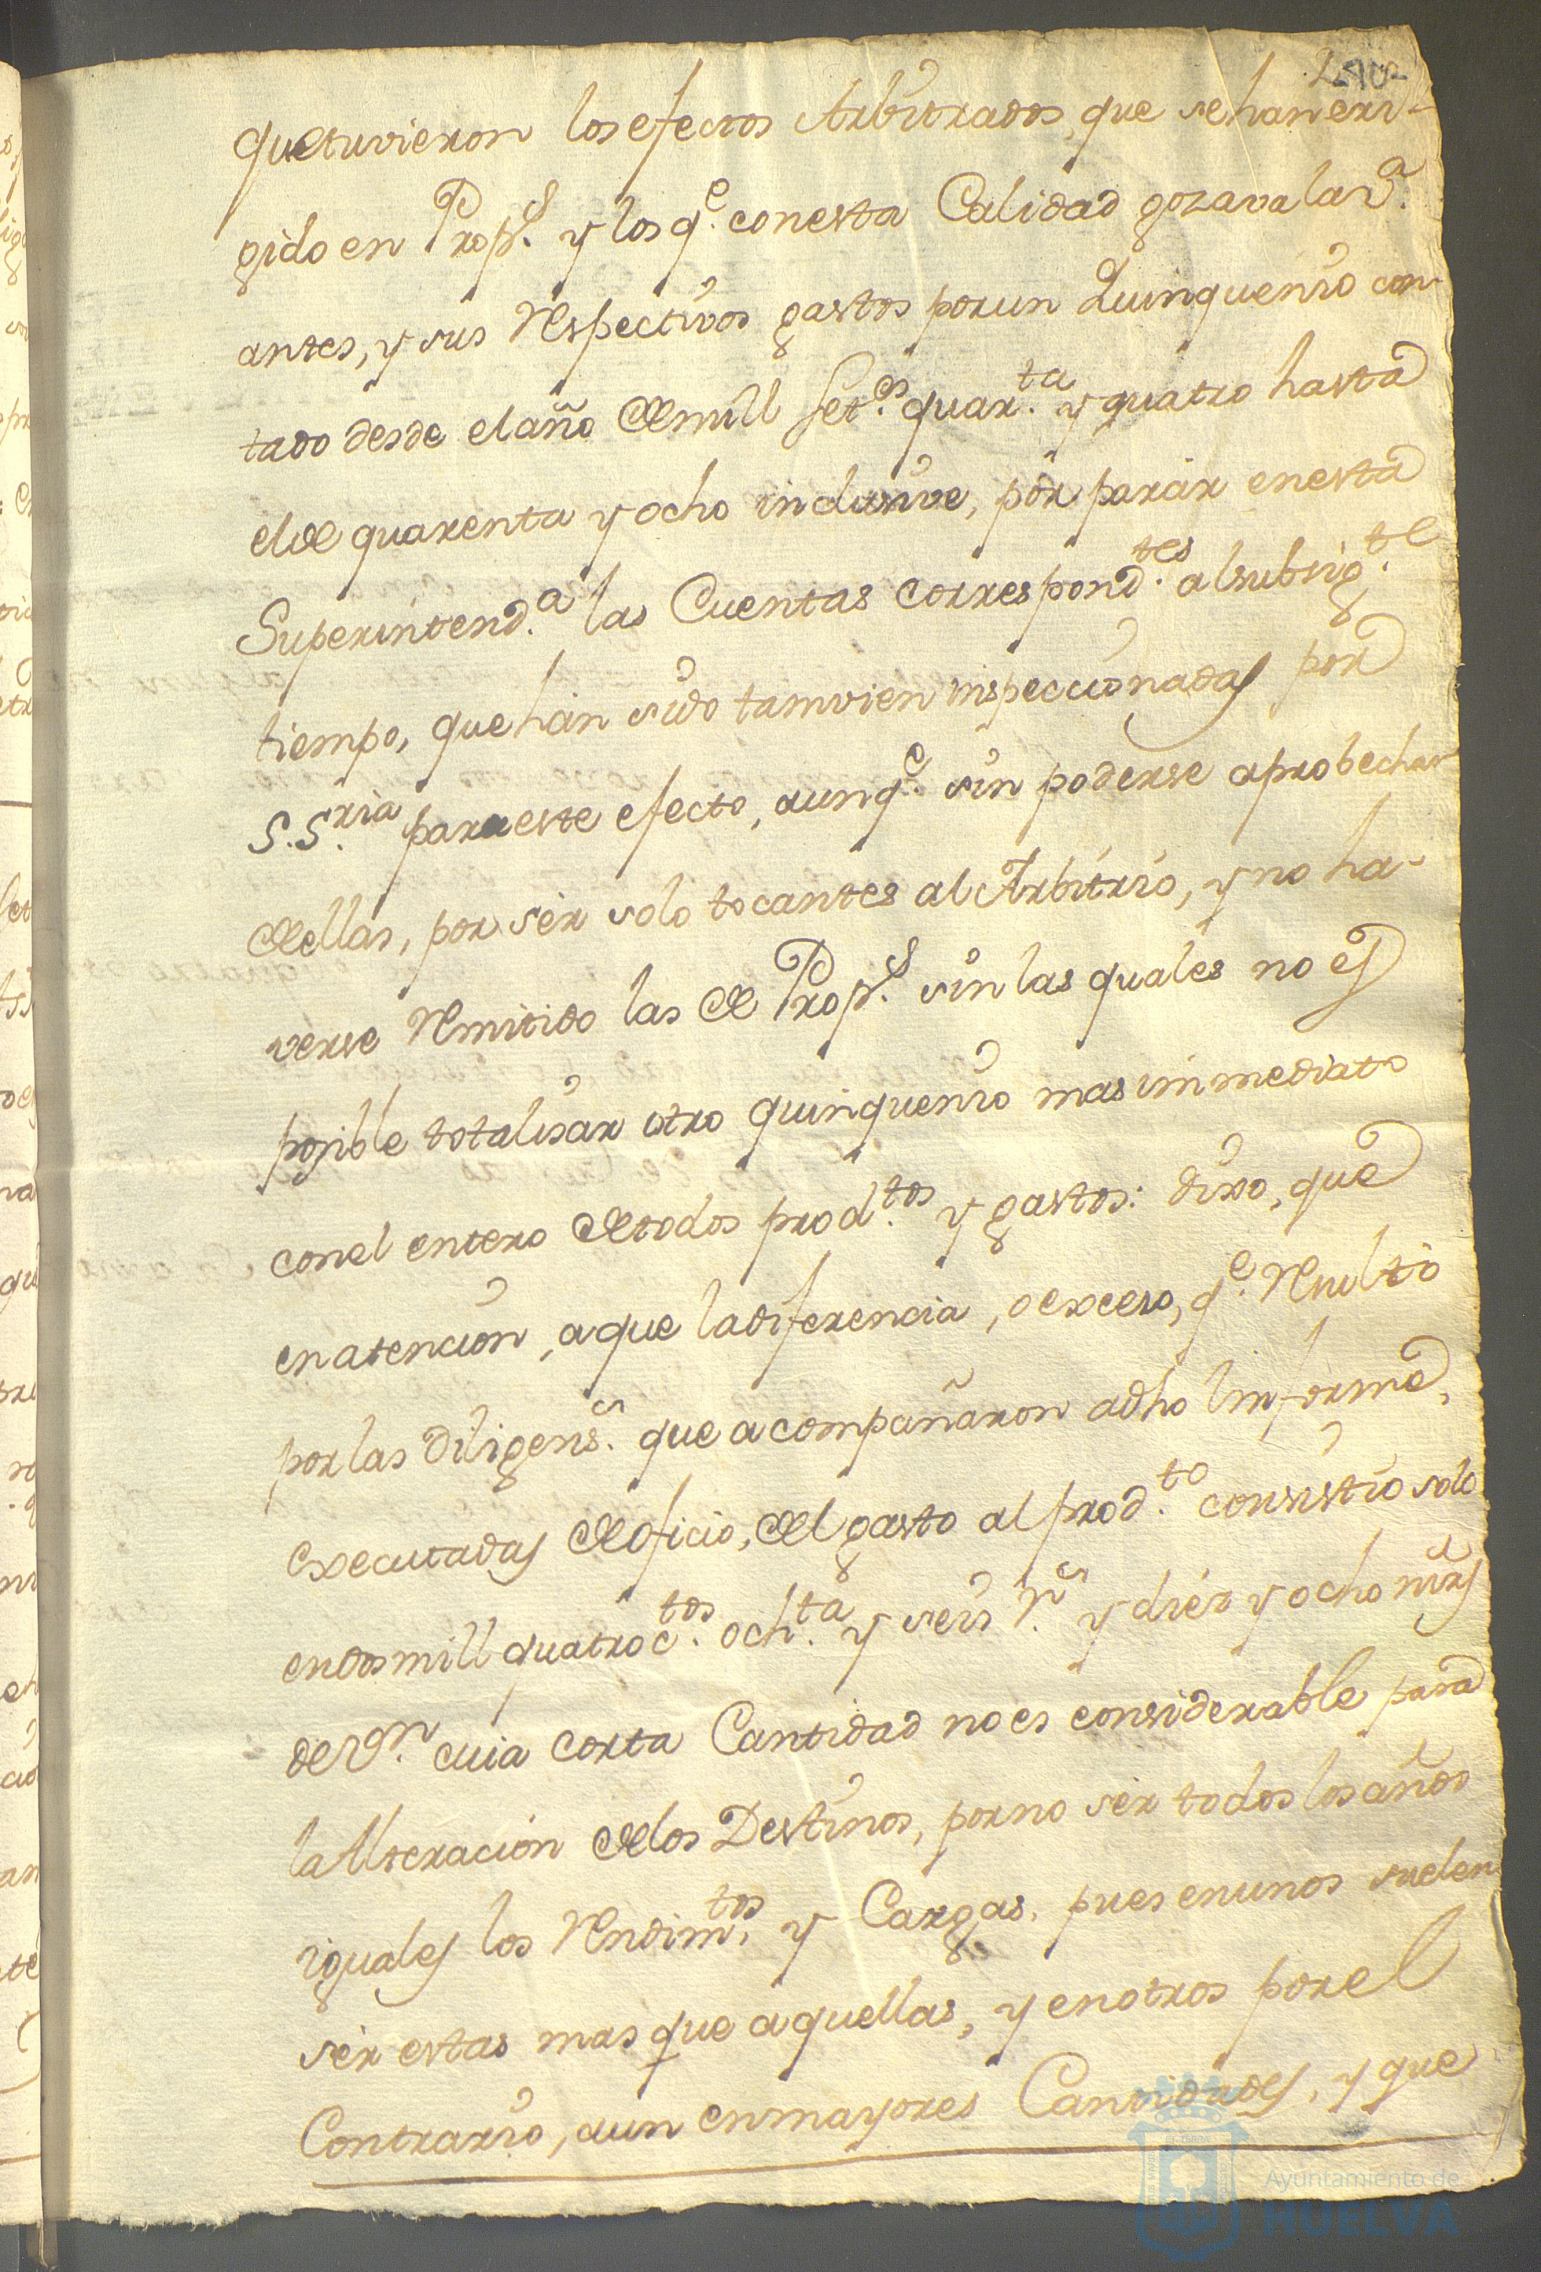 que tuvieron los efectos Arbitrados, que se han eri-
gido en Prop.s y los q.e con esta Calidad gozava la V.a
antes, y sus respectivos gastos por un Quinquenio con-
tado desde el año de mill set.os quar.ta y quatro hasta
el de quarenta y ocho inclusive, por parar en esta
Superintend.a las Cuentas correspond.tes al subsig.te
tiempo, que han sido tamvien inspeccionadas por
S.S.ria para este efecto, aunq.e sin poderse aprobechar
de ellas, por ser solo tocantes al Arbitrio, y no ha-
verse remitido las de Prop.s sin las quales no es
posible totalisar otro quinquenio mas immediato
con el entero de todos prod.tos y gastos: dixo, que
en atencion, a que la diferencia, o exceso, q.e resultó
por las diligens.s que acompañaron a dho Informe,
executadas de oficio, del gasto al prod.to consistio solo
en dos mill quatroc.tos och.ta y seis r.s y diez y ocho mrs
de v.n cuia corta Cantidad no es considerable para
la Alteracion de los Destinos, por no ser todos los años
iguales los rendim.tos y Cargas, pues en unos suelen
ser estas mas que aquellas, y en otros por el
Contrario, aun en mayores Cantidades, y que
Ayuntamiento de
HUELVA